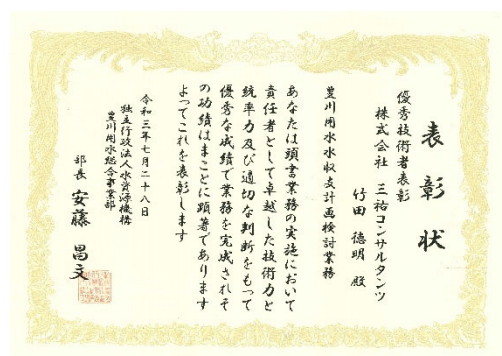 表彰状
優秀技術者表彰
株式会社 三祐コンサルタンツ
竹田 徳明 殿
豊川用水水収支計画検討業務
あなたは頭書業務の実施において
責任者として卓越した技術力と
統率力及び適切な判断をもって
優秀な成績で業務を完成されそ
の功績はまことに顕著であります
よってこれを表彰します
令和三年七月二十八日
独立行政法人水資源機構
豊川用水総合事業部
部長 安藤 昌文